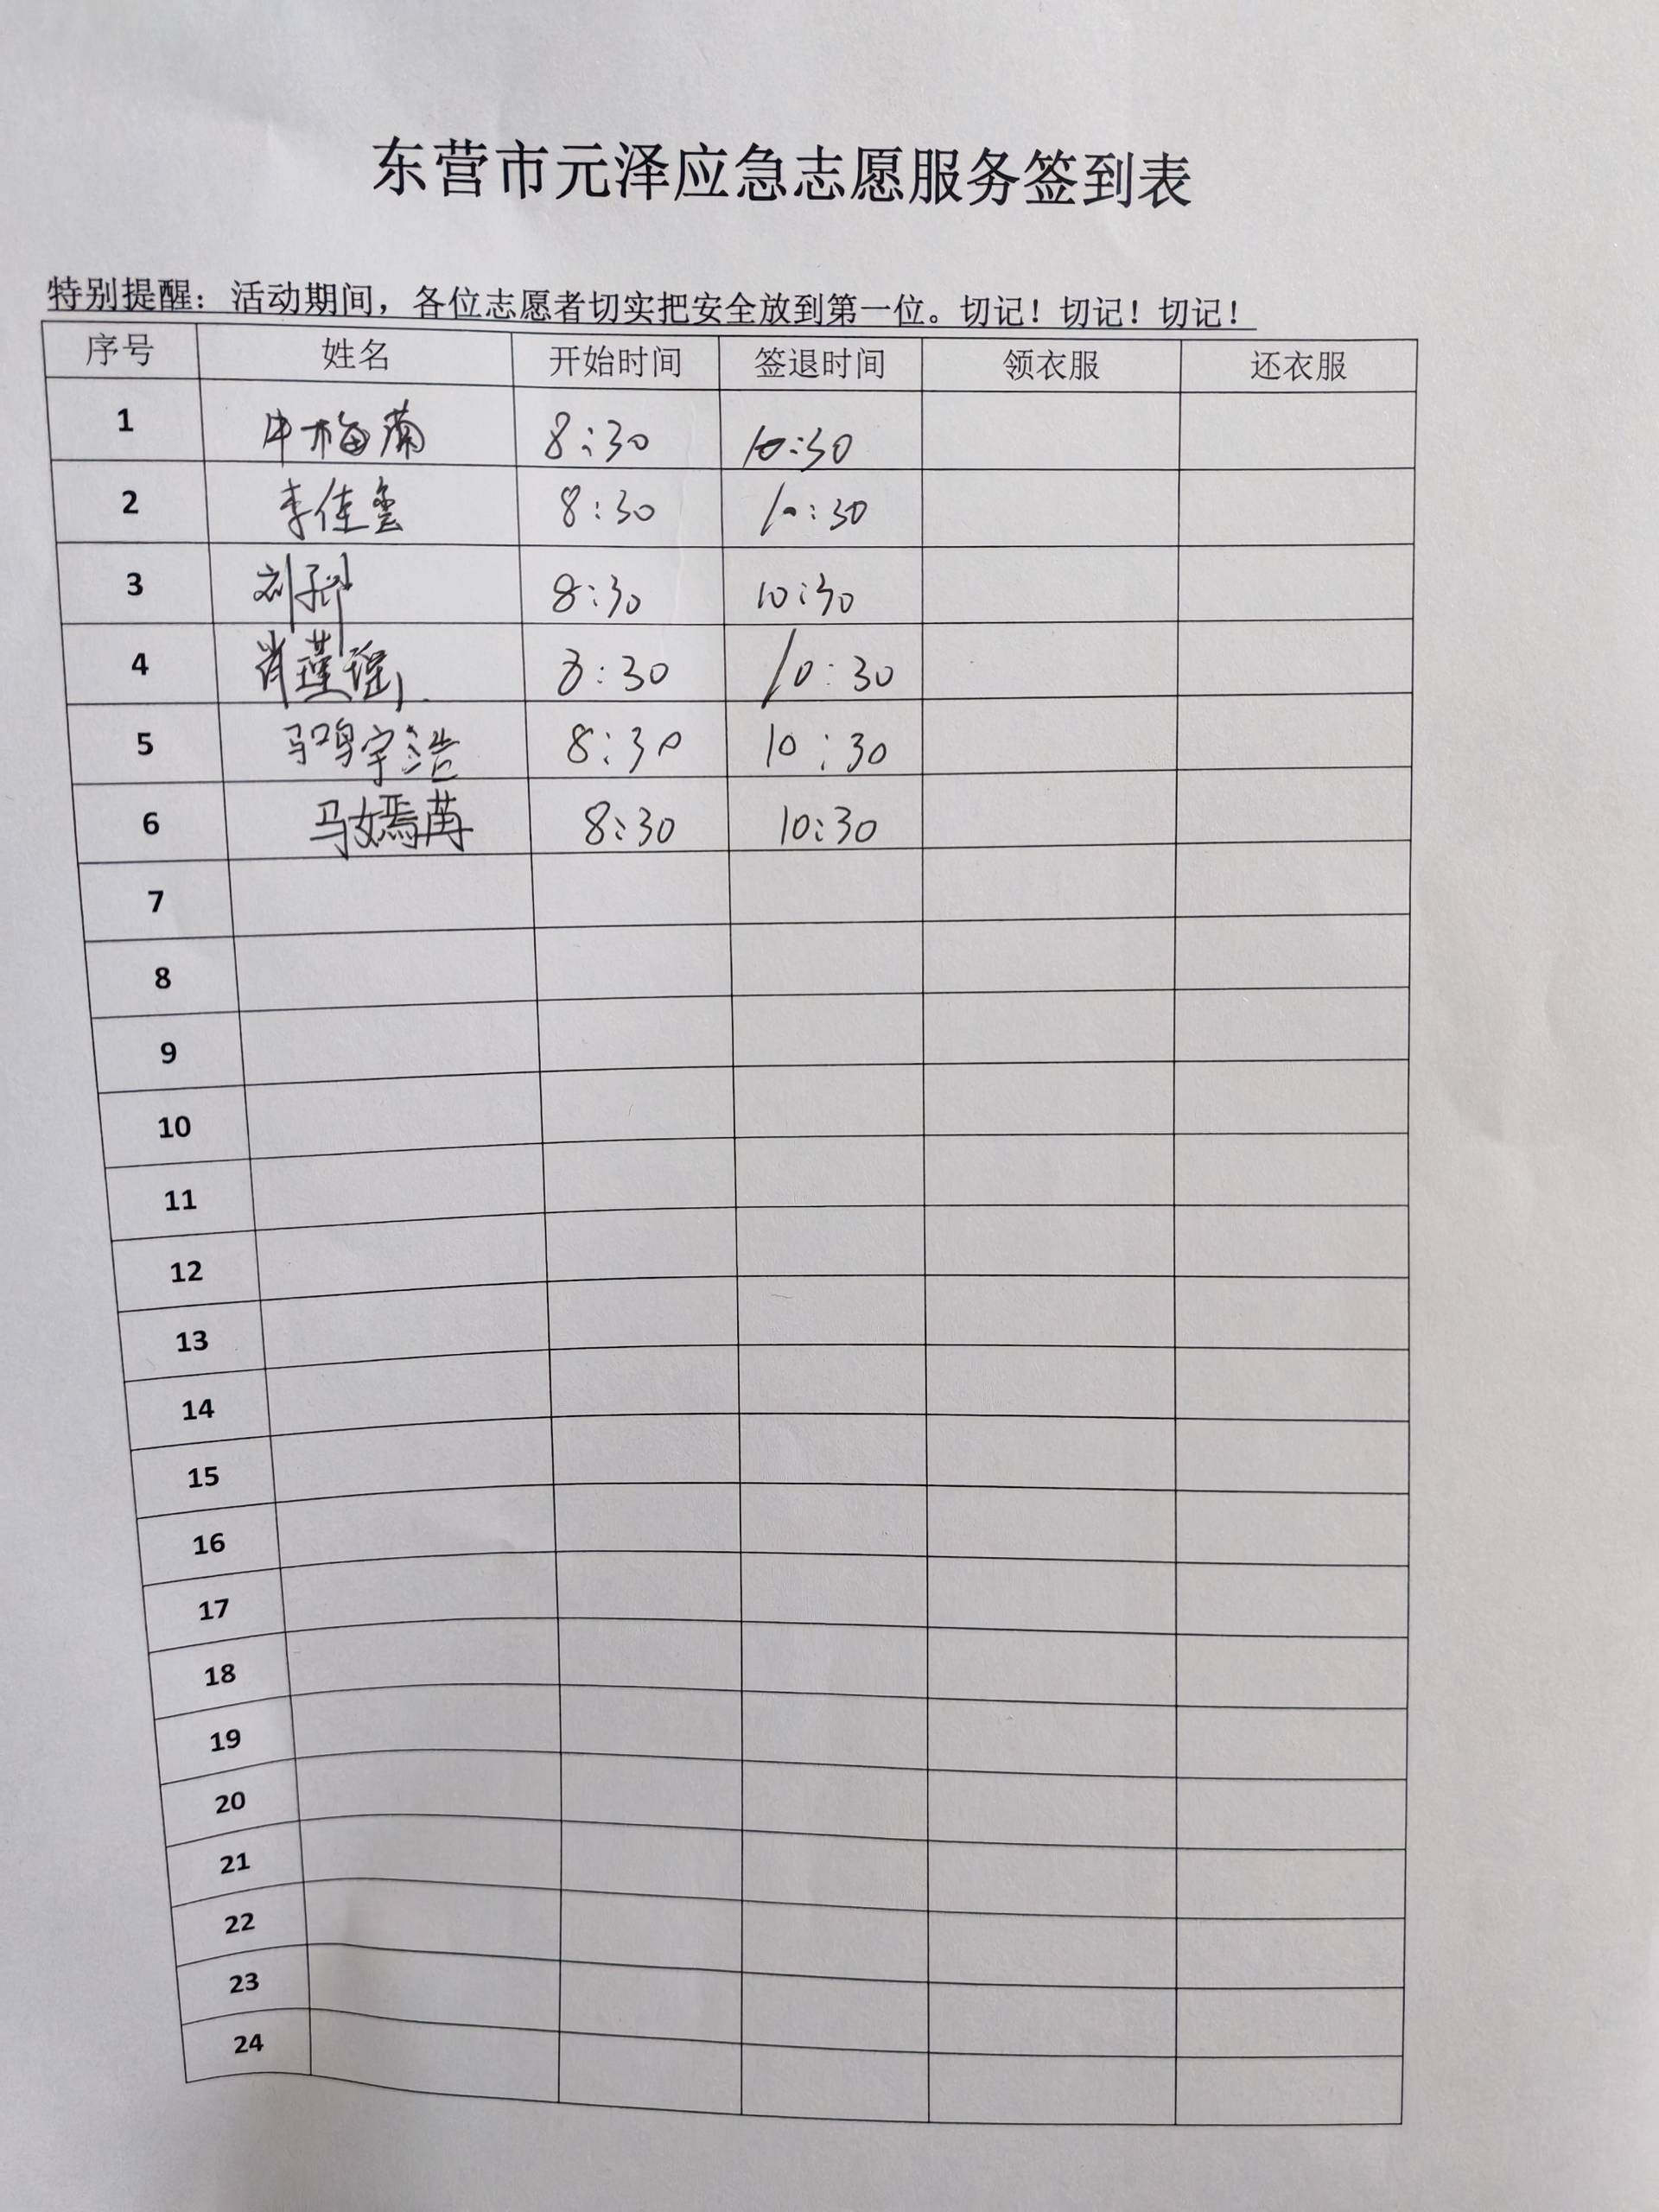 东营市元泽应急志愿服务签到表
特别提醒：活动期间，各位志愿者切实把安全放到第一位。切记！切记！切记！
序号 姓名 开始时间 签退时间 领衣服 还衣服
1 牛梅兰 8:30 10:30
2 李佳 8:30 10:30
3 刘 8:30 10:30
4 肖瑾瑶 8:30 10:30
5 马鸣宇浩 8:30 10:30
6 马嫣苒 8:30 10:30
7
8
9
10
11
12
13
14
15
16
17
18
19
20
21
22
23
24